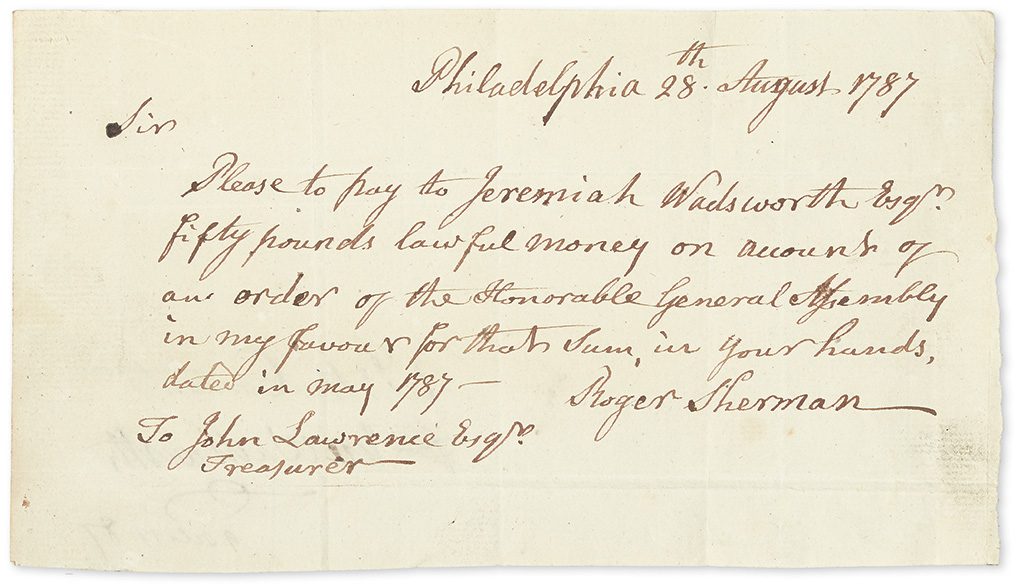 Philadelphia 28th. August 1787
Sir
Please to pay to Jeremiah Wadsworth Esqr.
fifty pounds lawful money on account of
an order of the Honorable General Assembly
in my favour for that Sum, in your hands,
dated in may 1787 —
Roger Sherman
To John Lawrence Esqr.
Treasurer